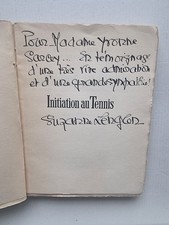 Pour Madame Yvonne
Sarcey... En témoignage
d'une très vive admiration
et d'une grande sympathie!
Initiation au Tennis
Suzanne Lenglen